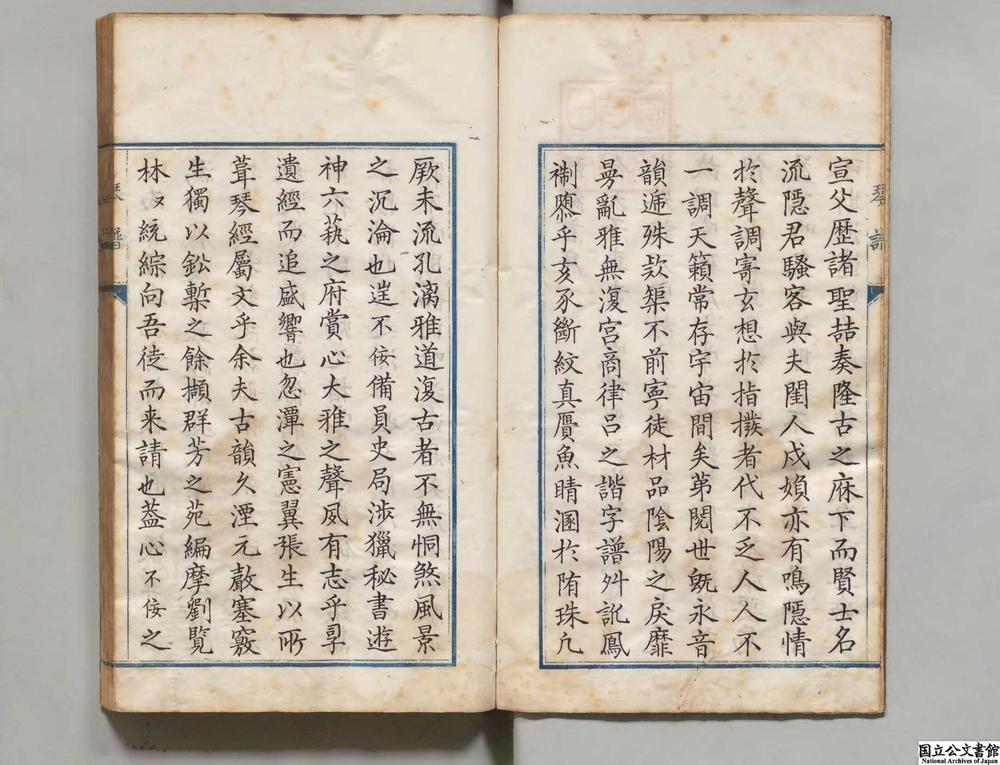 宣父歴諸聖喆奏隆古之庥下而賢士名
流隱君騷客與夫閨人戍媍亦有鳴隱情
扵聲調寄玄想扵指撥者代不乏人人不
一調天籟常存宇宙間矣苐閱世既永音
韻逓殊欵榘不前寧徒材品陰陽之戾靡
曼亂雅無復宮商律吕之諧字譜舛訛鳳
𧝓隳乎亥豕斷紋真贋魚睛溷扵隋珠凢
厥末流孔漓雅道復古者不無恫煞風景
之沉淪也逞不佞備員史局涉獵秘書遊
神六藝之府賞心大雅之聲夙有志乎尋
遺經而追盛響也忽潭之憲翼張生以所
葺琴經屬文乎余夫古韻久湮元數塞竅
生獨以鈆槧之餘擷群芳之苑編摩劉覽
林又統綜向吾徒而来請也葢心不佞之
琴譜
琴譜
国立公文書館
National Archives of Japan